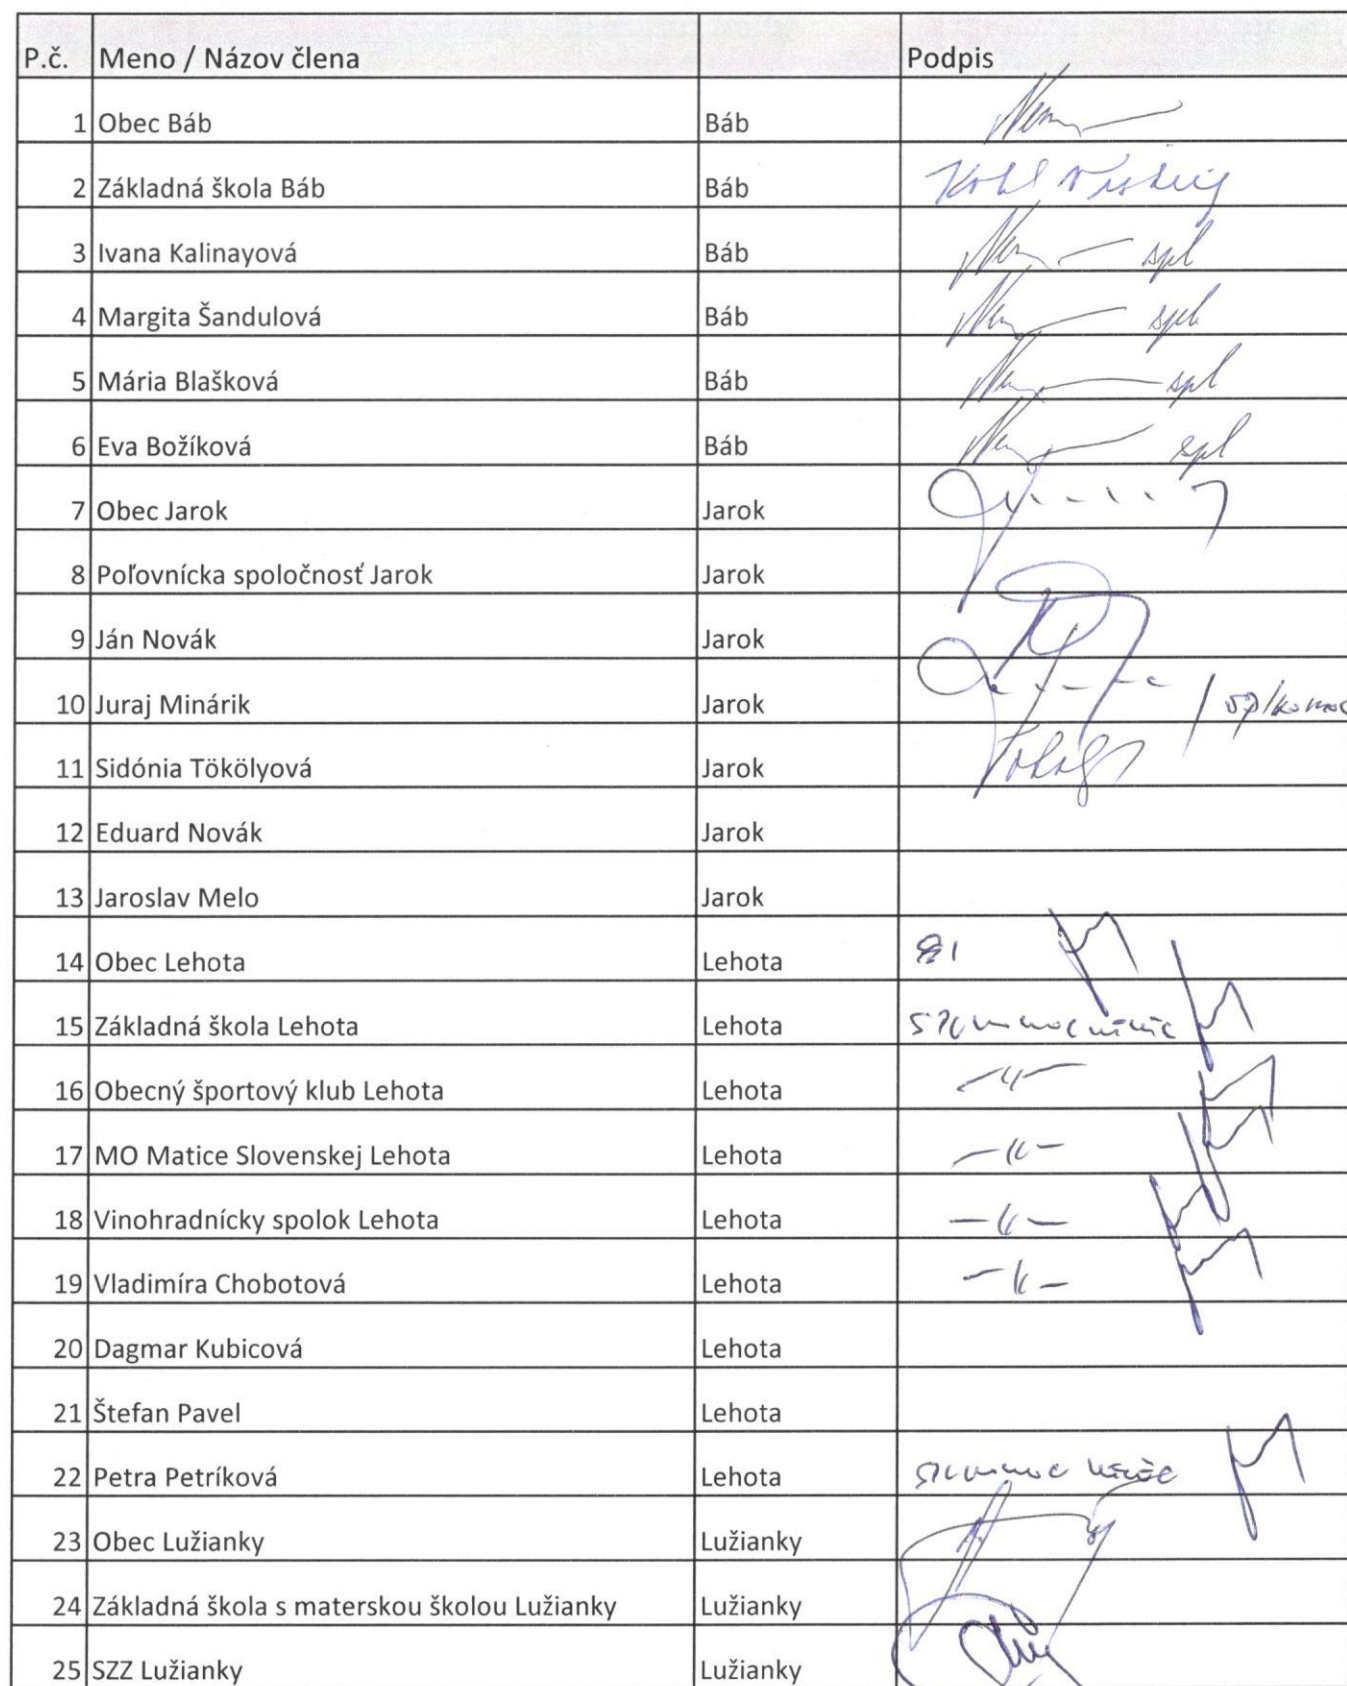 P.č. Meno / Názov člena Podpis
1 Obec Báb Báb
2 Základná škola Báb Báb
3 Ivana Kalinayová Báb spl
4 Margita Šandulová Báb spl
5 Mária Blašková Báb spl
6 Eva Božíková Báb spl
7 Obec Jarok Jarok
8 Poľovnícka spoločnosť Jarok Jarok
9 Ján Novák Jarok
10 Juraj Minárik Jarok
11 Sidónia Tökölyová Jarok
12 Eduard Novák Jarok
13 Jaroslav Melo Jarok
14 Obec Lehota Lehota
15 Základná škola Lehota Lehota
16 Obecný športový klub Lehota Lehota
17 MO Matice Slovenskej Lehota Lehota
18 Vinohradnícky spolok Lehota Lehota
19 Vladimíra Chobotová Lehota
20 Dagmar Kubicová Lehota
21 Štefan Pavel Lehota
22 Petra Petríková Lehota
23 Obec Lužianky Lužianky
24 Základná škola s materskou školou Lužianky Lužianky
25 SZZ Lužianky Lužianky